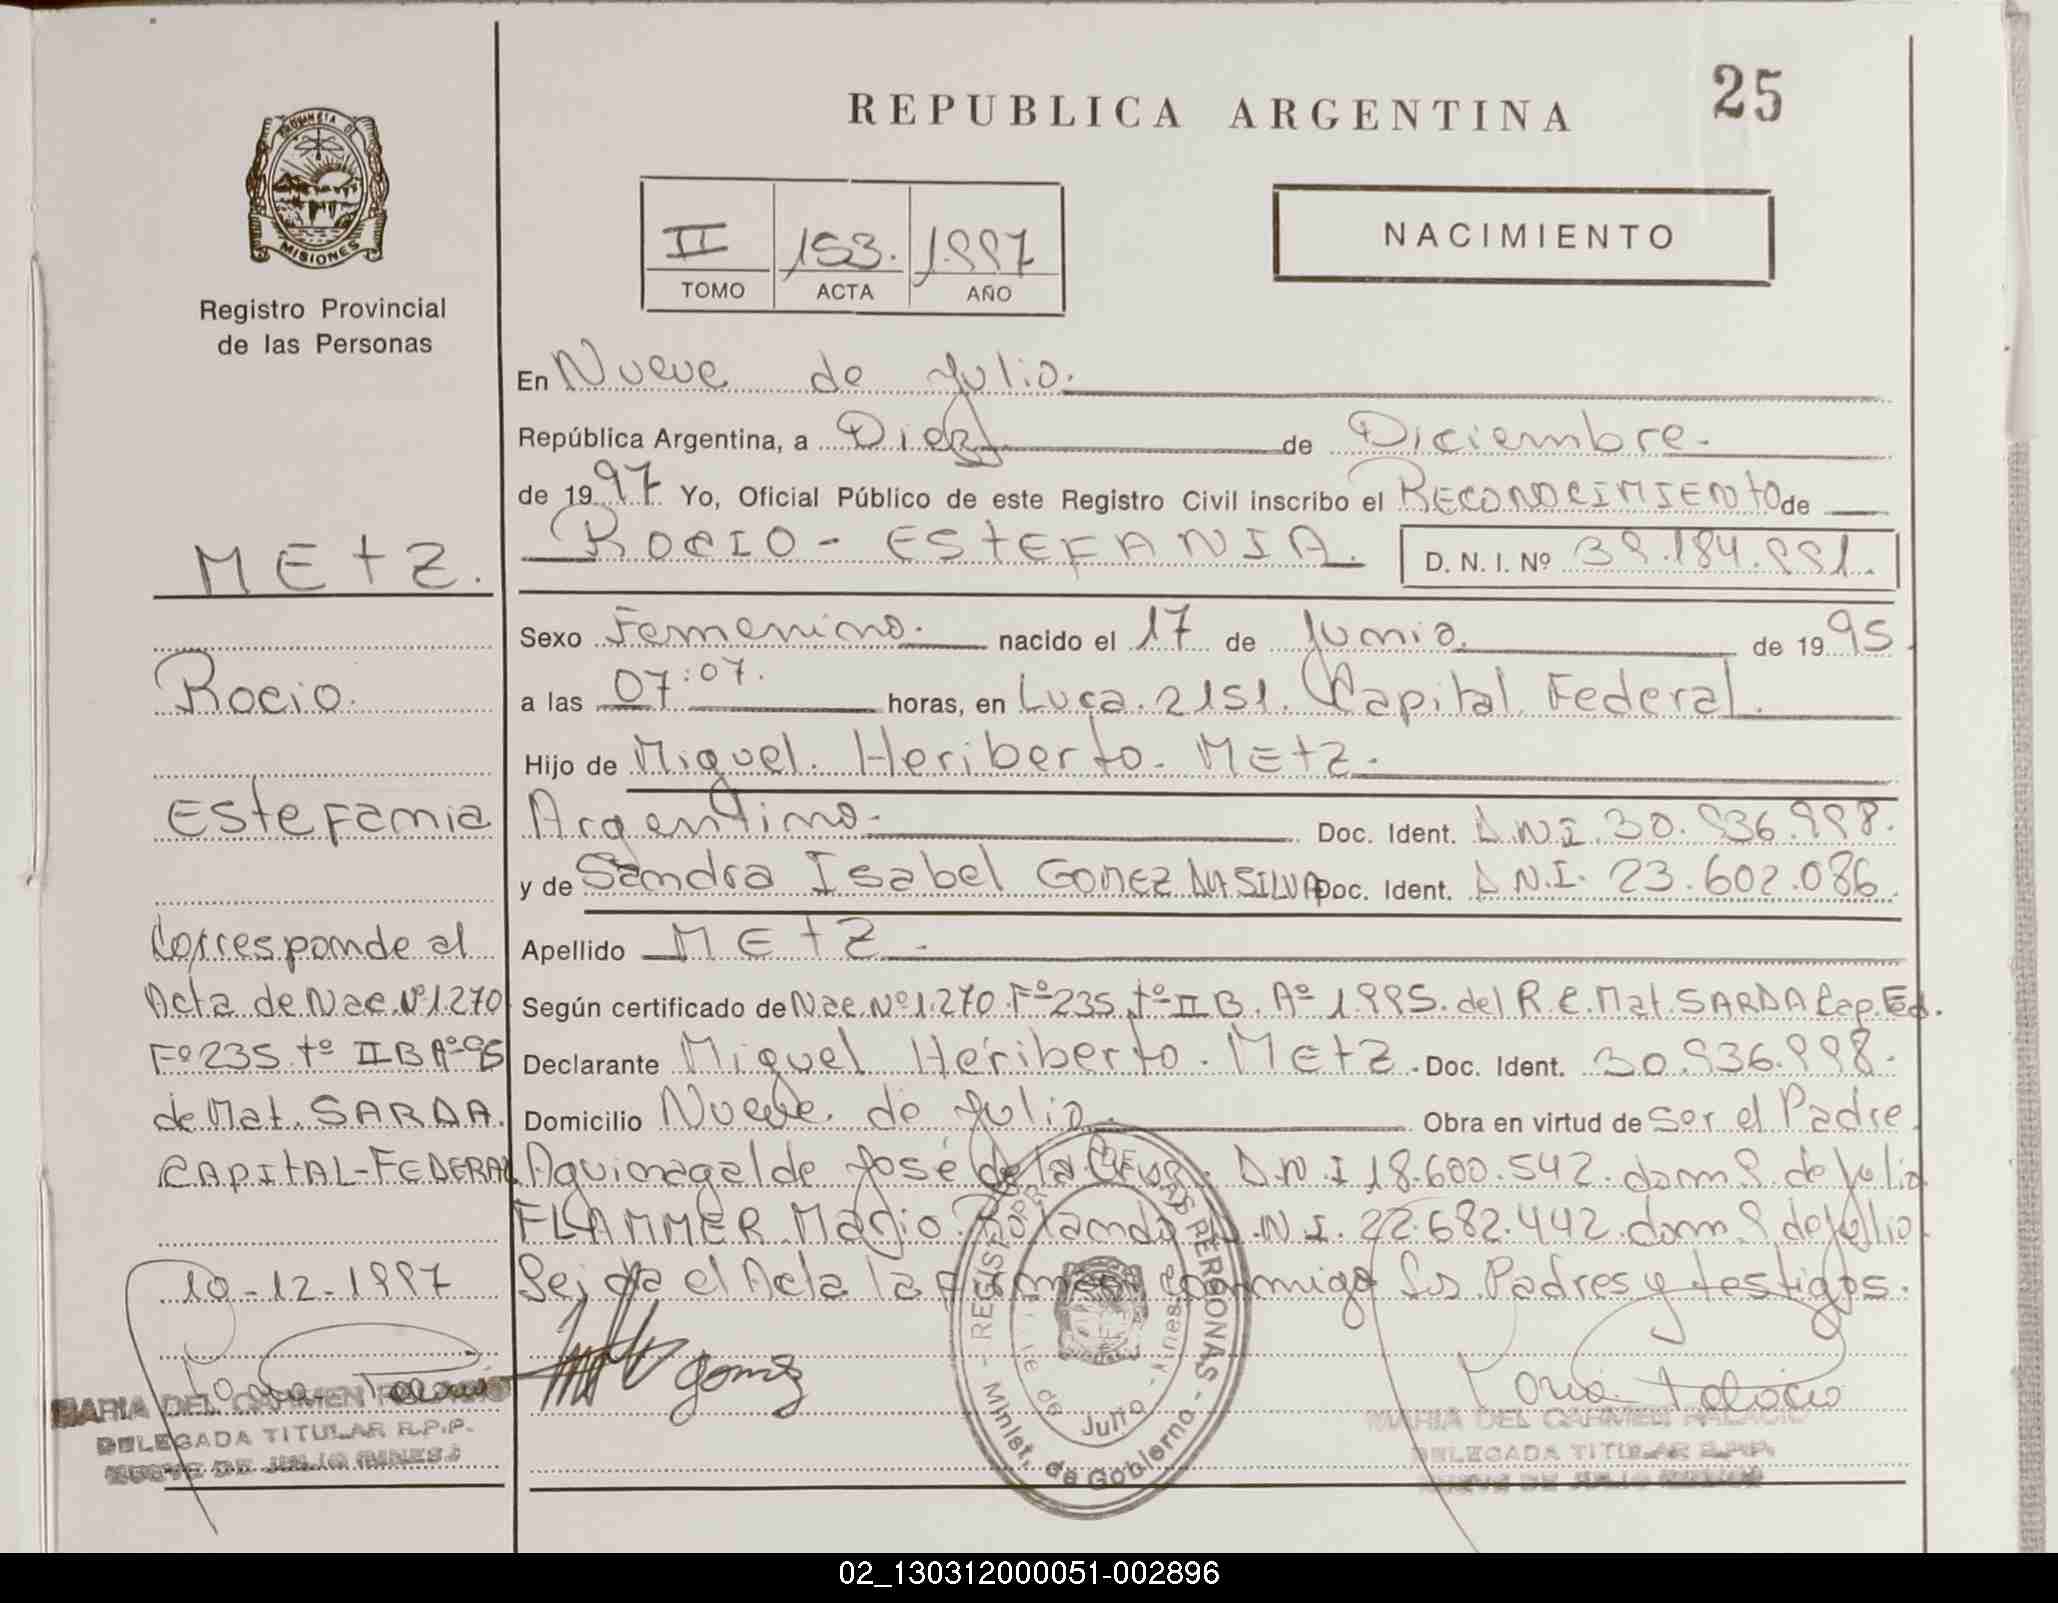 25
REPUBLICA ARGENTINA
PROVINCIA DE
MISIONES
Registro Provincial
de las Personas
II 153. 1997
TOMO ACTA AÑO
NACIMIENTO
En Nueve de Julio.
República Argentina, a Diez de Diciembre.
de 1997 Yo, Oficial Público de este Registro Civil inscribo el RECONOCIMIENTO de
ROCIO - ESTEFANIA. D. N. I. Nº 39.184.991.
Sexo Femenino. nacido el 17 de Junio. de 1995
a las 07:07. horas, en Luca. 2151. Capital Federal.
Hijo de Miguel. Heriberto. METZ.
Argentino. Doc. Ident. D.N.I. 30.936.998.
y de Sandra Isabel GOMEZ DA SILVA Doc. Ident. D.N.I. 23.602.086.
Apellido METZ.
Según certificado de Nac. Nº 1.270 Fº 235 tº II B. Aº 1.995. del R.C. Mat. SARDA Cap. Fed.
Declarante Miguel Heriberto. METZ. Doc. Ident. 30.936.998.
Domicilio Nueve de Julio. Obra en virtud de ser el Padre
José de la D.N.I 18.600.542. dom 9 de Julio
FLAMMER Mario Rolando D.N.I. 22.682.442. dom 9 de Julio
el Acta la firman conmigo los Padres y testigos.
Gomez
METZ.
Rocio.
Estefania
Corresponde al
Acta de Nac. Nº 1.270
Fº 235 tº II B Aº 95
de Mat. SARDA.
CAPITAL-FEDERAL
10-12-1997
MARIA DEL CARMEN PALACIO
DELEGADA TITULAR R.P.P.
NUEVE DE JULIO (MNES.)
REGISTRO PROV. DE LAS PERSONAS
Minist. de Gobierno
de Julio - Mnes.
MARIA DEL CARMEN PALACIO
DELEGADA TITULAR R.P.P.
NUEVE DE JULIO
02_130312000051-002896